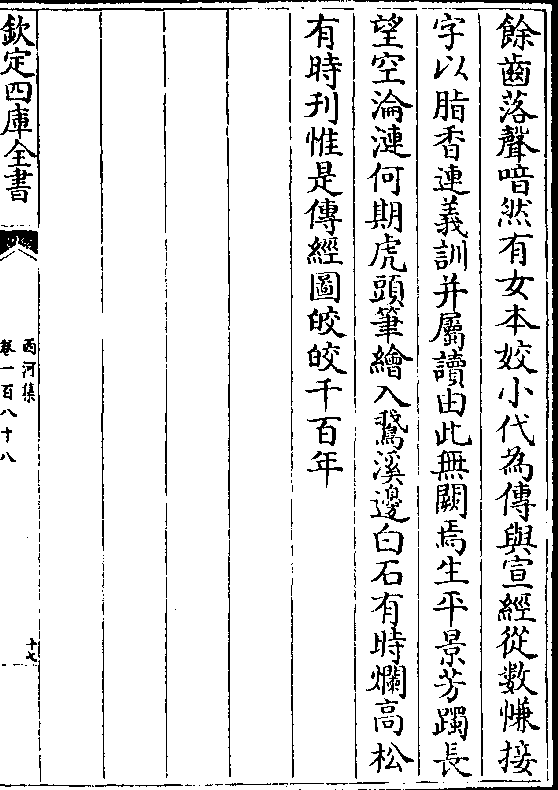 餘齒落聲喑然有女本姣小代為傳與宣經從數慊接
字以脂香連義訓并屬讀由此無闕焉生平景芳躅長
望空淪漣何期虎頭筆繪入鵞溪邊白石有時爛高松
有時刋惟是傳經圖皎皎千百年
欽定四庫全書
西河集
卷一百八十八
十七